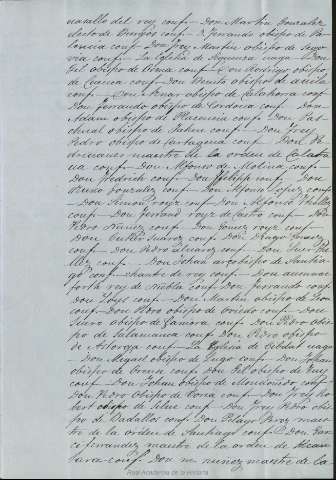 vasallo del rey conf. Don Martin Gonzalez
electo de Burgos conf. D. Ferrando obispo de Pa-
lencia conf. Don frey Martin obispo de Sego-
via conf. La Eglesia de Siguenza vaga. Don
Gil obispo de Osma conf. Don Rodrigo obispo
de Cuenca conf. Don Benito obispo de Avila
conf. Don Aznar obispo de Calahorra conf.
Don Ferrando obispo de Cordova conf. Don
Adam obispo de Plasencia conf. Don Pas-
chual obispo de Jahen conf. Don frey
Pedro obispo de Cartagena conf. Don Pe-
drivannez maestre de la orden de Calatra-
va conf. Don Alfonso de Molina conf.
Don Fredrich conf. Don Felipp conf. Don
Nunno Gonzalez conf. Don Alfonso Lopez conf.
Don Simon royz conf. Don Alfonso Thellez
conf. Don Ferrand royz de Castro conf. Don
Pedro Nuñez conf. Don Gomez royz conf.
Don Gutier Suarez conf. Don Diago Gomez
conf. Don Pedro Alvarez conf. Don Suer Te-
llez conf. Don Johan arzobispo de Santia-
go conf. chanceler de rey conf. Don
rey de Niebla conf. Don Ferrando conf.
Don Loys conf. Don Martin obispo de Leon
conf. Don Pedro obispo de Oviedo conf. Don
Suero obispo de Zamora conf. Don Pedro obis-
po de Salamanca conf. Don Pedro obispo
de Astorga conf. La Eglesia de Cibdat vaga
Don Miguel obispo de Lugo conf. Don Johan
obispo de Orens conf. Don Gil obispo de Tuy
conf. Don Johan obispo de Mondoñedo conf.
Don Pedro obispo de Coria conf. Don frey Ro-
bert obispo de Silve conf. Don frey Pedro obis-
po de Badalloz conf. Don Pelay Perez maes-
tre de la orden de Santiago conf. Don Gar-
ci Ferrandez maestre de la orden de Alcan-
tara conf. Don nuñez maestre de la
Real Academia de la Historia